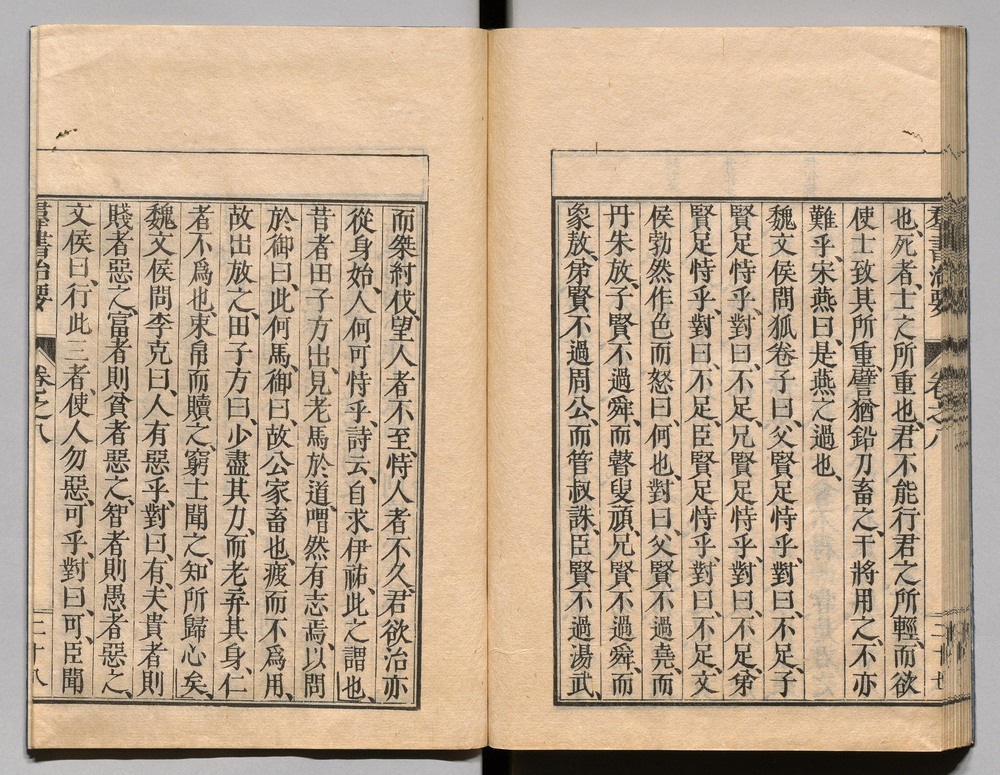 也、死者、士之所重也、君不能行君之所輕、而欲
使士致其所重、譬猶鉛刀畜之、干將用之、不亦
難乎、宋燕曰、是燕之過也、
魏文侯問狐卷子曰、父賢足恃乎、對曰、不足、子
賢足恃乎、對曰、不足、兄賢足恃乎、對曰、不足、弟
賢足恃乎、對曰、不足、臣賢足恃乎、對曰、不足、文
侯勃然作色而怒曰、何也、對曰、父賢不過堯、而
丹朱放、子賢不過舜、而瞽叟頑、兄賢不過舜、而
象敖、弟賢不過周公、而管叔誅、臣賢不過湯武、
而桀紂伐、望人者不至、恃人者不久、君欲治亦
從身始、人何可恃乎、詩云、自求伊祐、此之謂也、
昔者田子方出、見老馬於道、喟然有志焉、以問
於御曰、此何馬、御曰、故公家畜也、疲而不爲用、
故出放之、田子方曰、少盡其力、而老弃其身、仁
者不爲也、束帛而贖之、窮士聞之、知所歸心矣、
魏文侯問李克曰、人有惡乎、對曰、有、夫貴者則
賤者惡之、富者則貧者惡之、智者則愚者惡之、
文侯曰、行此三者、使人勿惡、可乎、對曰、可、臣聞
羣書治要 卷之八 二十八